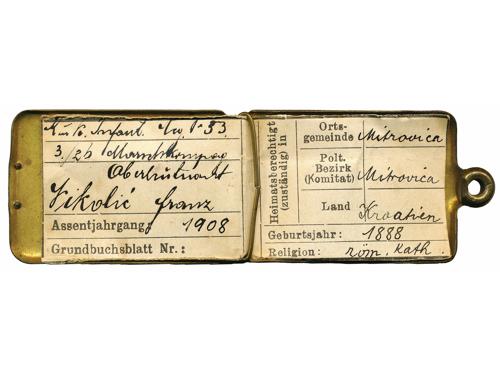 K.u.K. Infant.
3./26 Marschkompag
franz
Assentjahrgang: 1908
Grundbuchsblatt Nr.:
Heimatsberechtigt (zuständig) in
Ortsgemeinde Mitrovica
Polt. Bezirk (Komitat) Mitrovica
Land Kroatien
Geburtsjahr: 1888
Religion: röm. Kath.